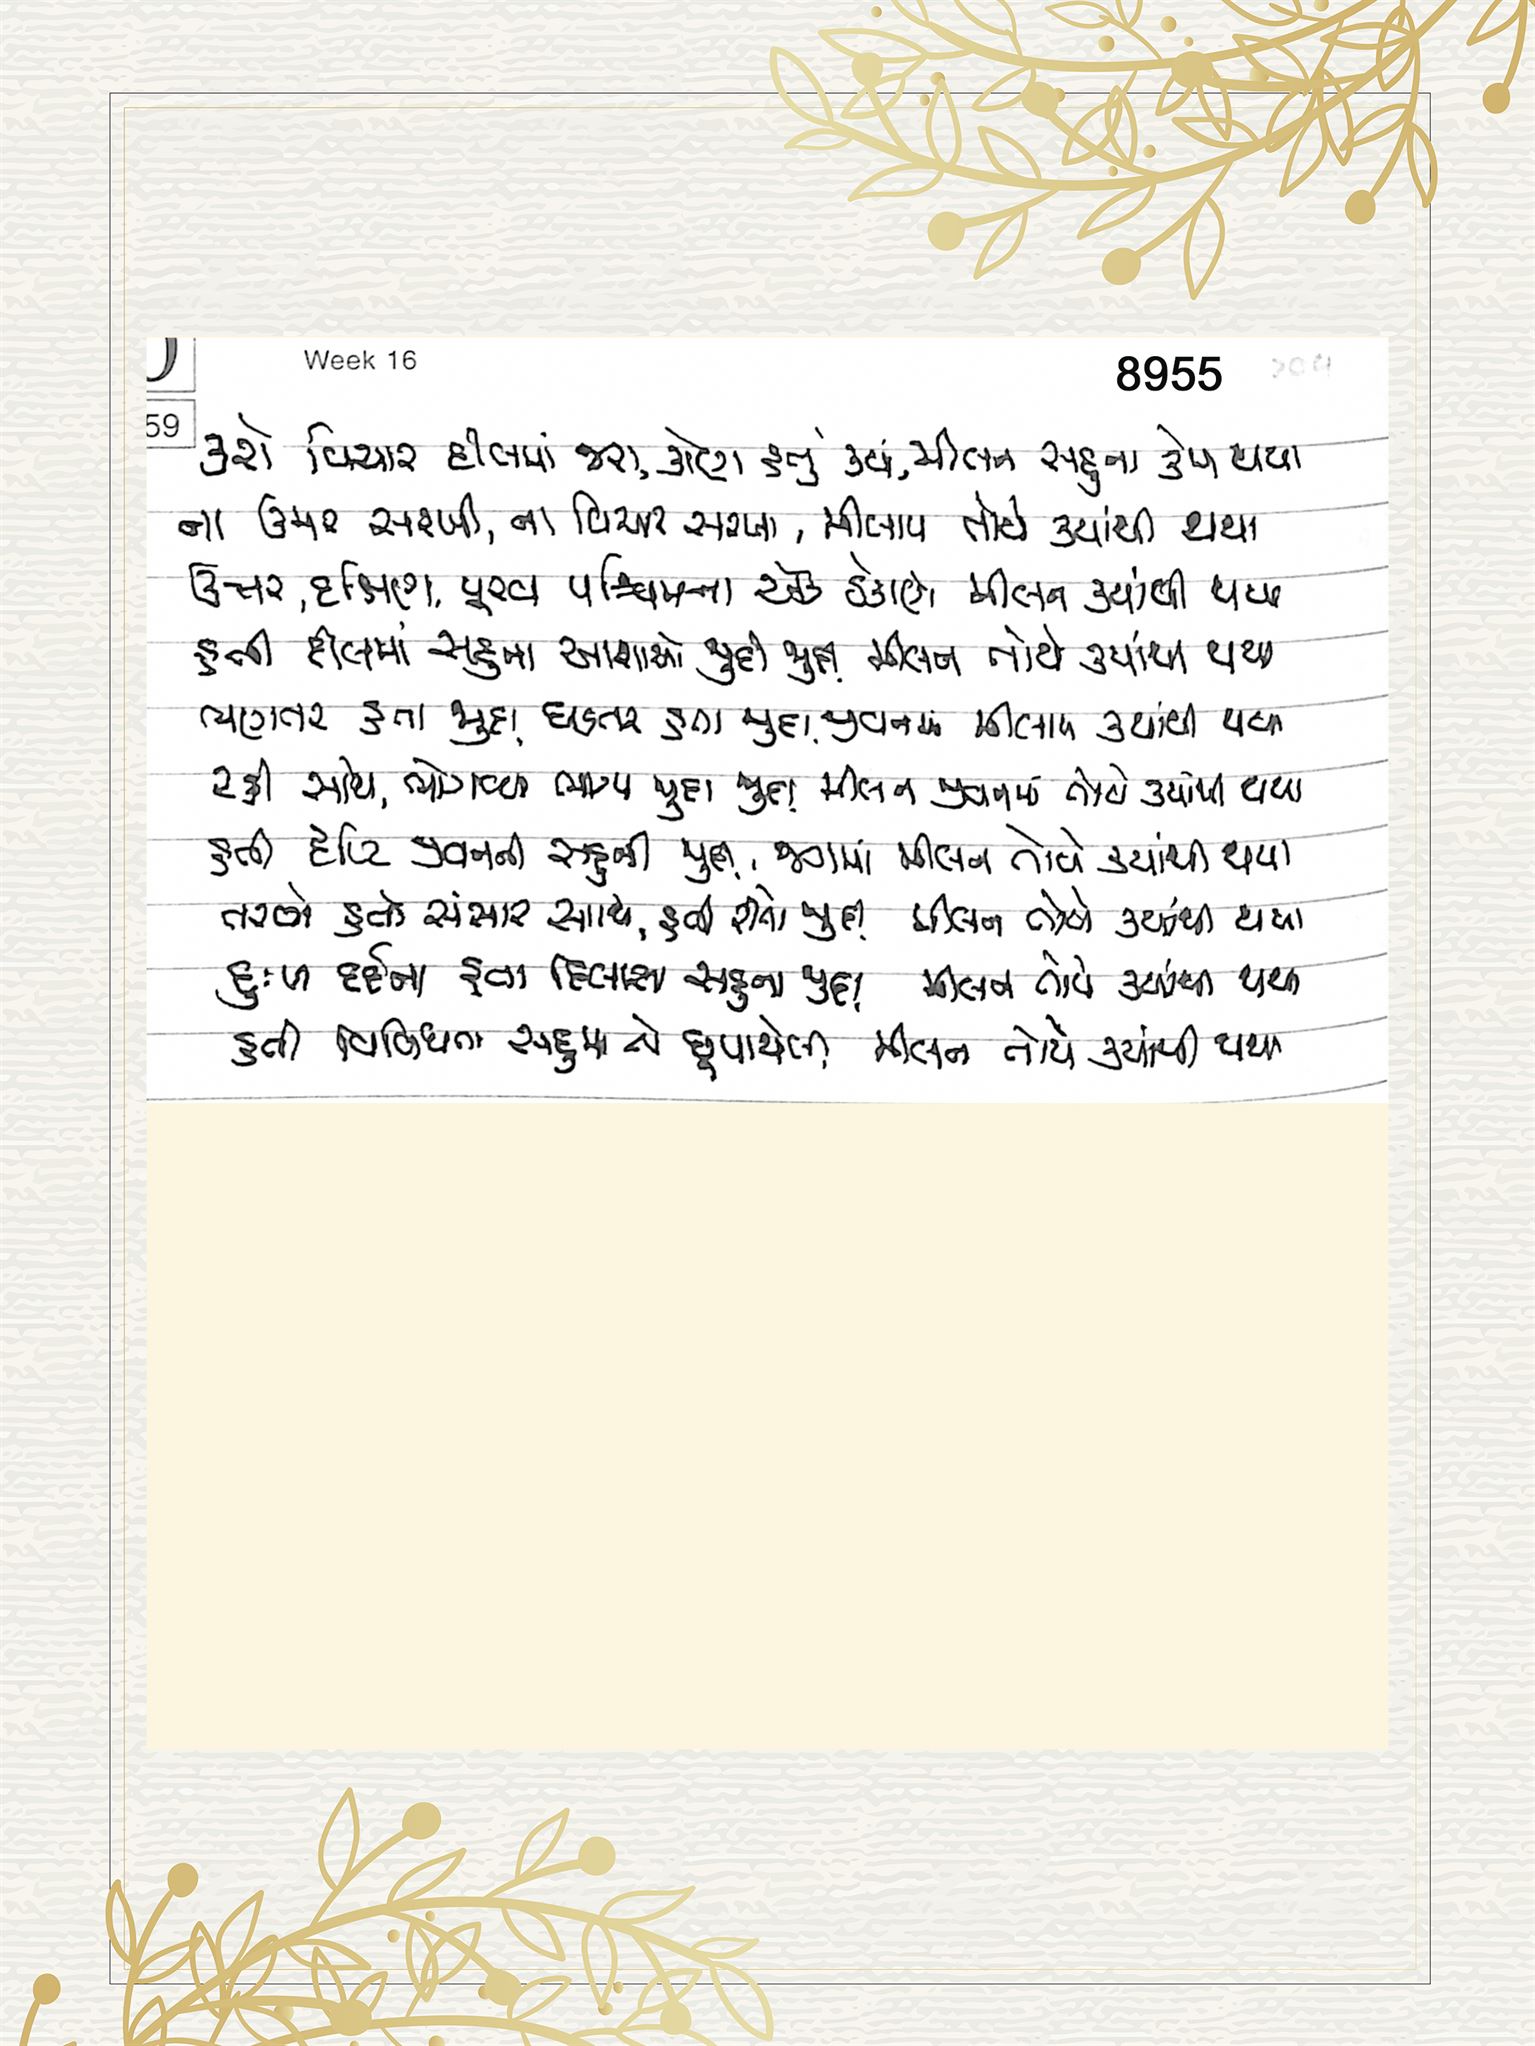 Week 16
8955
59
કરો વિચાર દીલમાં જરા, કોણ હતું ક્યાં, મીલન સહુના કેમ થયા
ના ઉમર સરખી, ના વિચાર સરખા, મીલાપ તોયે ક્યાંથી થયા
ઉત્તર, દક્ષિણ, પૂરવ પશ્ચિમના એક ઠેકાણે મીલન ક્યાંથી થયા
હતી દીલમાં સહુના આશાઓ જુદી જુદી મીલન તોયે ક્યાંથી થયા
ભણતર હતા જુદા, ઘડતર હતા જુદા, જીવનમાં મીલાપ ક્યાંથી થયા
રહી સાથે, ભોગવ્યા ભાગ્ય જુદા જુદા મીલન જીવનમાં તોયે ક્યાંથી થયા
હતી દૃષ્ટિ જીવનની સહુની જુદી, જગમાં મીલન તોયે ક્યાંથી થયા
તરવો હતો સંસાર સાથે, હતી રીતો જુદી મીલન તોયે ક્યાંથી થયા
દુઃખ દર્દના હતા હિસાબ સહુના જુદા મીલન તોયે ક્યાંથી થયા
હતી વિવિધતા સહુમાં તો છૂપાયેલી મીલન તોયે ક્યાંથી થયા